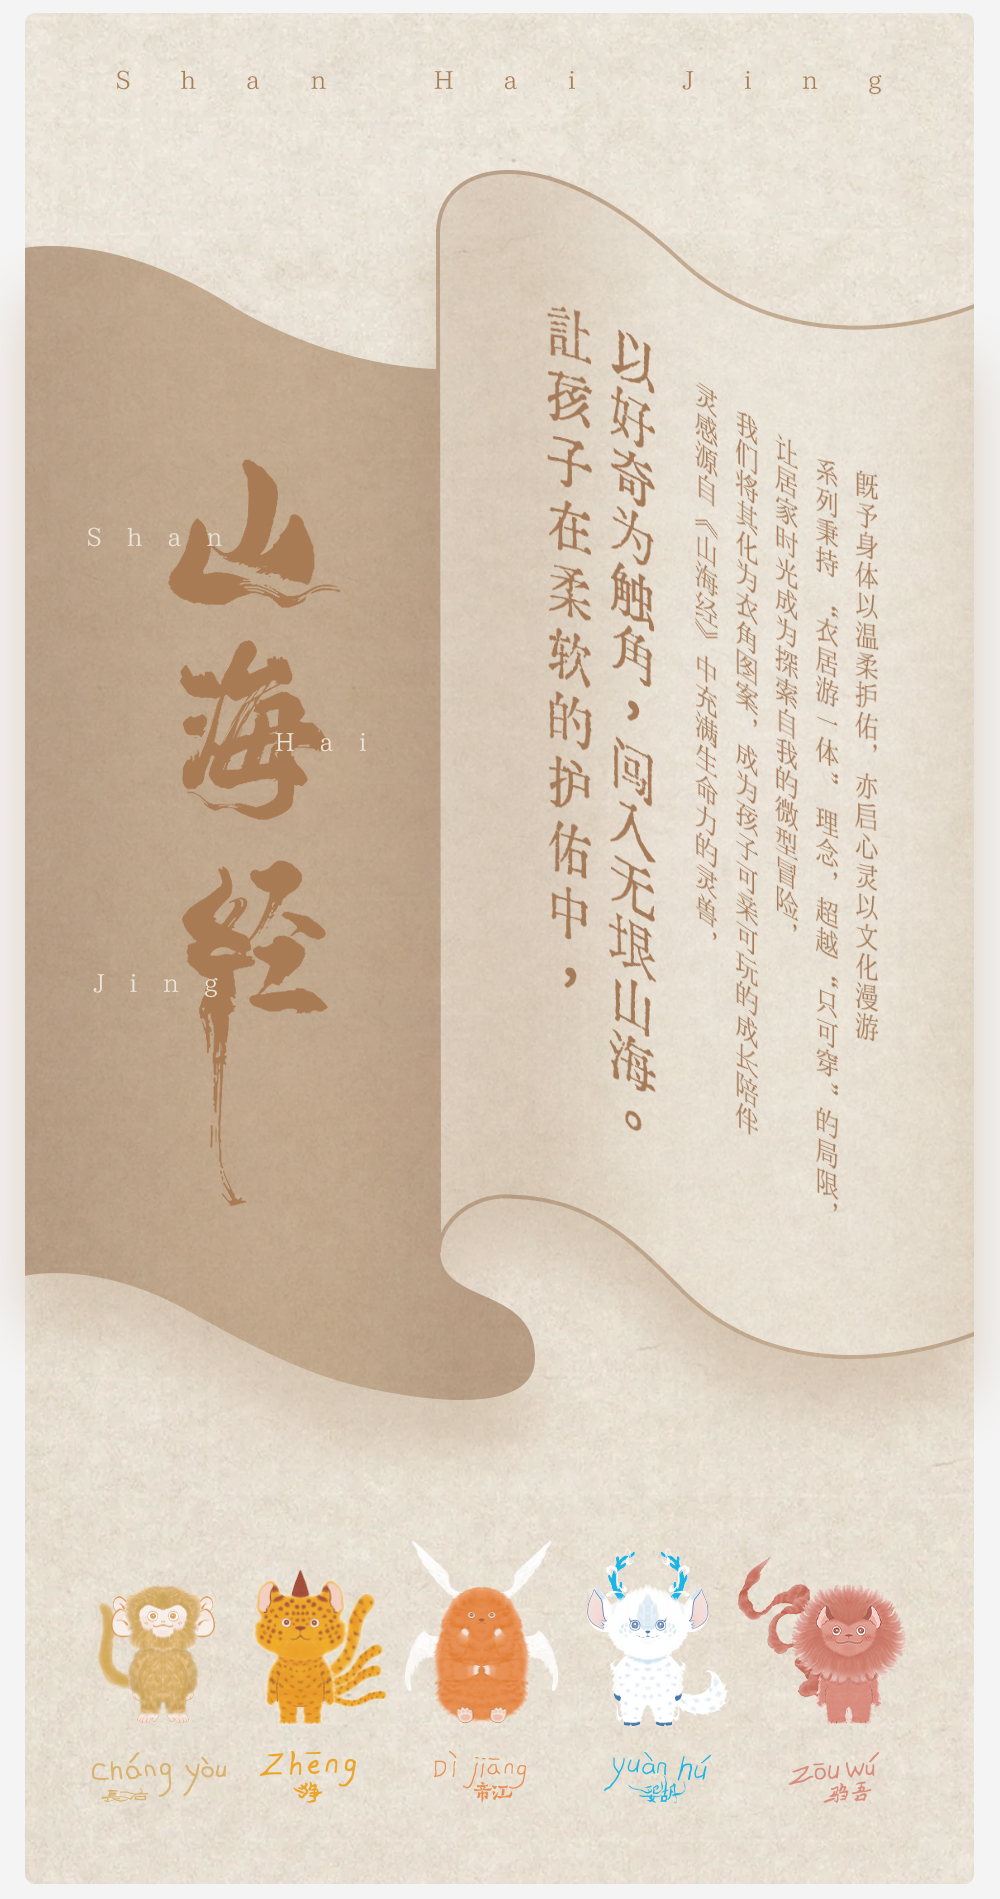 Shan Hai Jing
山海经
Shan
Hai
Jing
让孩子在柔软的护佑中，
以好奇为触角，闯入无垠山海。
灵感源自《山海经》中充满生命力的灵兽，
我们将其化为衣角图案，成为孩子可柔可玩的成长陪伴
让居家时光成为探索自我的微型冒险，
系列秉持“衣居游一体”理念，超越“只可穿”的局限，
既予身体以温柔护佑，亦启心灵以文化漫游
cháng yòu
長右
Zhēng
狰
Dì jiāng
帝江
yuàn hú
妴胡
zōu wú
驺吾